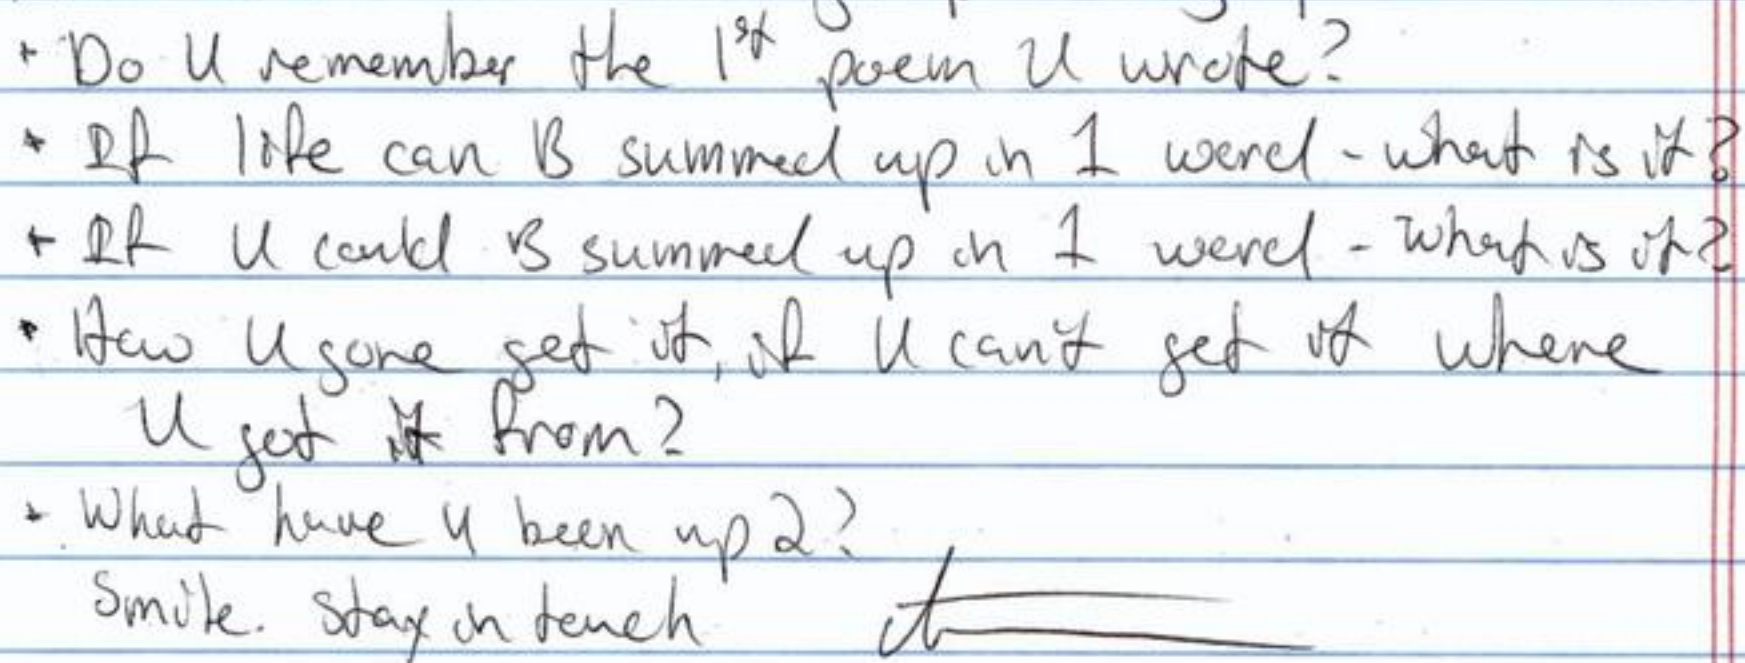 • Do U remember the 1st poem U wrote?
• If life can B summed up in 1 word - what is it?
• If U could B summed up in 1 word - what is it?
• How U gone get it, if U can't get it where
U got it from?
• What have U been up 2?
Smile. Stay in touch